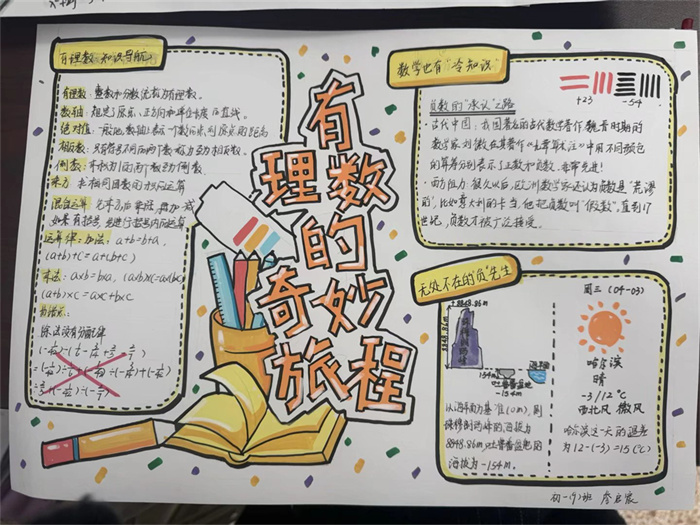 有理数 知识导航
有理数：整数和分数统称为有理数。
数轴：规定了原点、正方向和单位长度的直线。
绝对值：一般地，数轴上表示一个数的点到原点的距离
相反数：只有符号不同的两个数称互为相反数。
倒数：乘积为1的两个数互为倒数。
乘方：求相同因数的积的运算
混合运算：先乘方，后乘除，再加减
如果有括号，先进行括号内的运算
运算律：加法：a+b=b+a,
(a+b)+c=a+(b+c)
乘法：a×b=b×a, (a×b)×c=a×(b×c)
(a+b)×c=a×c+b×c
易错点：
除法没有分配律
有理数的奇妙旅程
数学也有“冷知识”
+23 -54
负数的“承认”之路
·古代中国：我国著名的古代数学著作，魏晋时期的
数学家刘徽在其著作《九章算术注》中用不同颜色
的算筹分别表示了正数和负数，非常先进！
·西方阻力：很久以后，欧洲数学家还认为负数是“荒谬
的”，比如意大利的卡当，他把负数叫“假数”，直到17
世纪，负数才被广泛接受。
无处不在的“负”先生
+8848.86m
8848.86m
珠穆朗玛峰
海平面
-154m
吐鲁番盆地
-154m
以海平面为基准(0m)，则
珠穆朗玛峰的海拔为
8848.86m，吐鲁番盆地的
海拔为-154m。
周三 (04-03)
哈尔滨
晴
-3/12℃
西北风 微风
哈尔滨这一天的温差
为12-(-3)=15(℃)